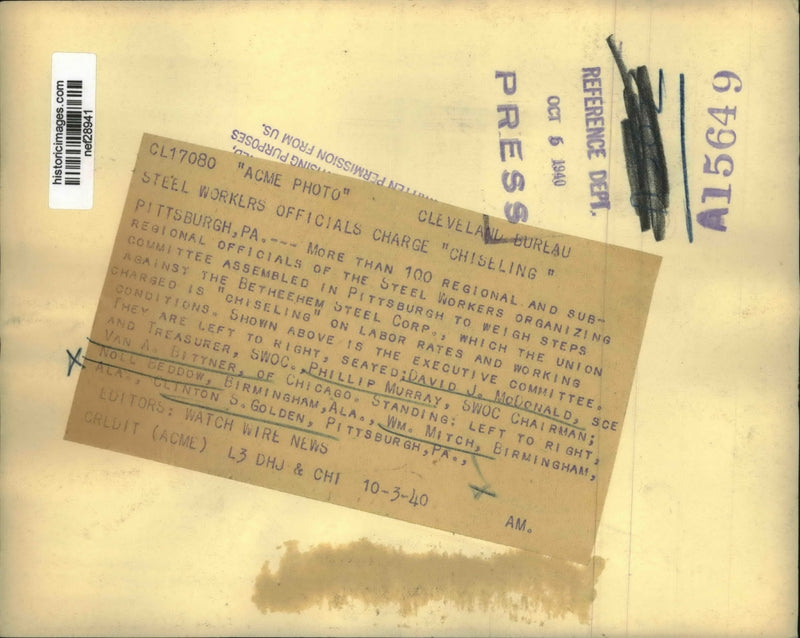 historicimages.com
nef28941
REFERENCE DEPT.
OCT 5 1940
PRESS
A15649
ISING PURPOSES
TTEN PERMISSION FROM US.
CL17080 "ACME PHOTO" CLEVELAND BUREAU
STEEL WORKERS OFFICIALS CHARGE "CHISELING"
PITTSBURGH,PA.--- MORE THAN 100 REGIONAL AND SUB-
REGIONAL OFFICIALS OF THE STEEL WORKERS ORGANIZING
COMMITTEE ASSEMBLED IN PITTSBURGH TO WEIGH STEPS
AGAINST THE BETHEEHEM STEEL CORP., WHICH THE UNION
CHARGED IS "CHISELING" ON LABOR RATES AND WORKING
CONDITIONS. SHOWN ABOVE IS THE EXECUTIVE COMMITTEE.
THEY ARE LEFT TO RIGHT, SEATED;DAVID J. MCDONALD, SCE
AND TREASURER, SWOC., PHILLIP MURRAY, SWOC CHAIRMAN;
VAN A. BITTNER, OF CHICAGO. STANDING: LEFT TO RIGHT,
NOLL BEDDOW, BIRMINGHAM,ALA., WM. MITCH, BIRMINGHAM,
ALA., CLINTON S.GOLDEN, PITTSBURGH,PA.,
EDITORS: WATCH WIRE NEWS
CREDIT (ACME) L3 DHJ & CHI 10-3-40 AM.